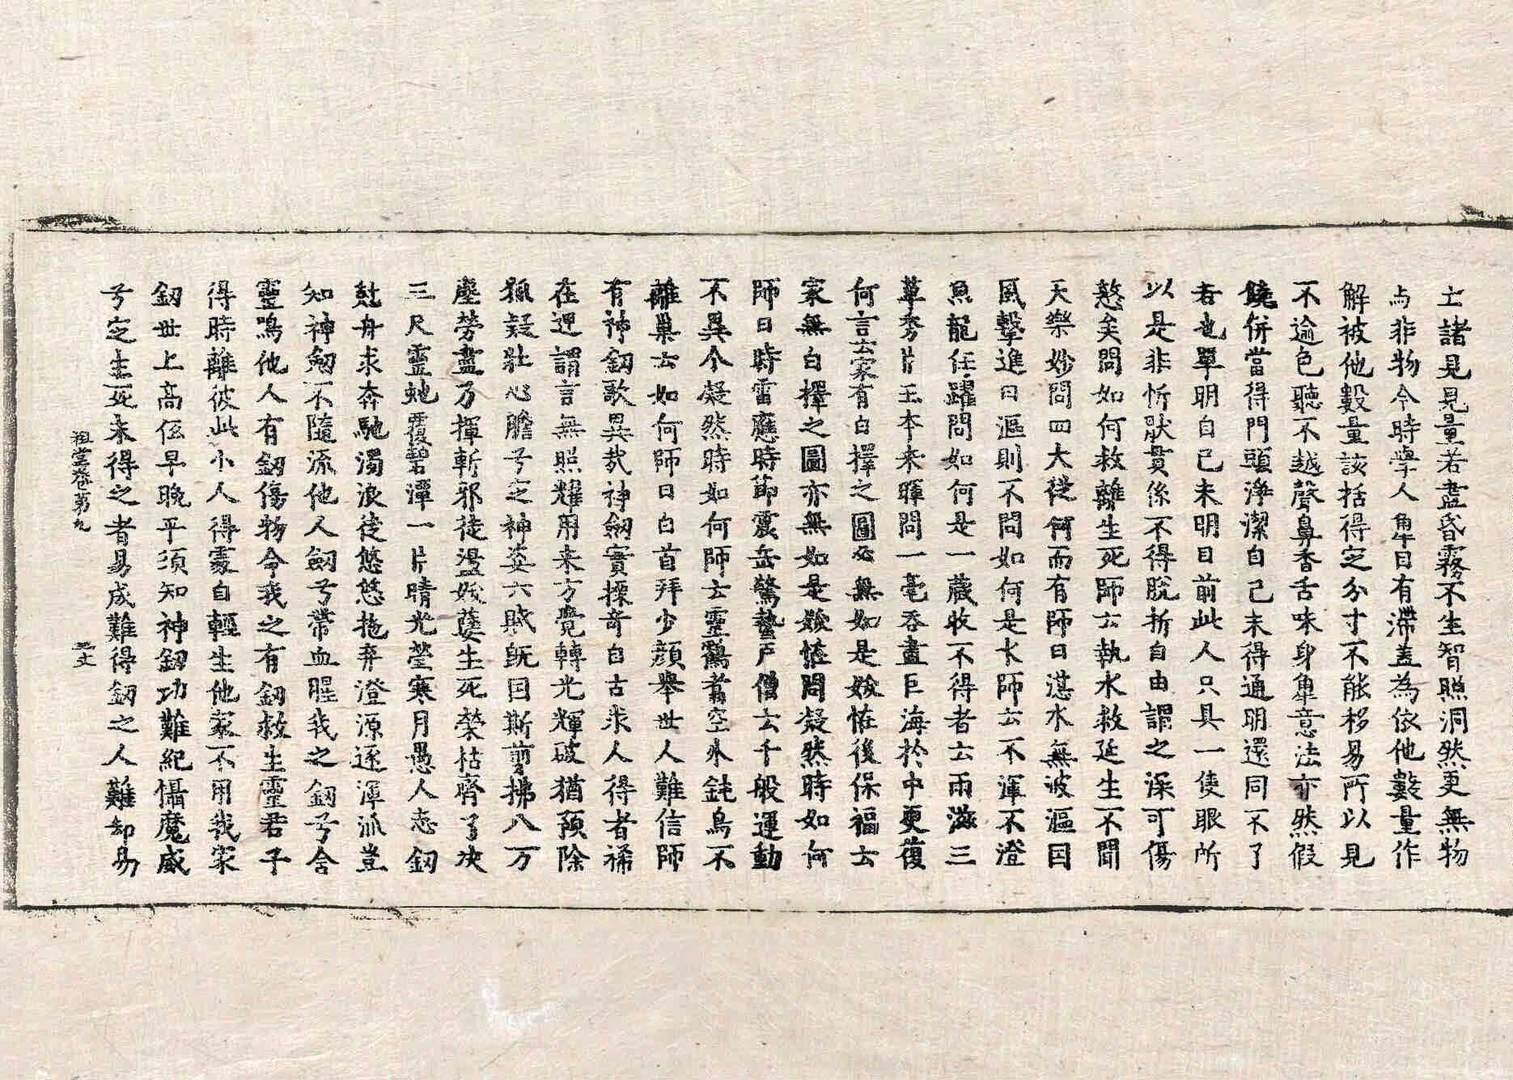 土諸見見量若盡昏霧不生智照洞然更無物
与非物今時學人𧢲目有滯盖為依他數量作
解被他數量該括得定分寸不能移易所以見
不逾色聽不越聲鼻香舌味身觸意法亦然假
饒併當得門頭淨潔自己未得通明還同不了
若也單明自己未明目前此人只具一隻眼所
以是非忻猒貫係不得脫折自由謂之深可傷
愍矣問如何救離生死師云執水救延生不聞
天樂妙問四大從何而有師曰湛水無波漚因
風擊進曰漚則不問如何是水師云不渾不澄
魚龍任躍問如何是一藏收不得者云雨滋三
草秀片玉本來暉問一毫吞盡巨海於中更復
何言云家有白擇之圖必無如是妖恠後保福云
家無白擇之圖亦無如是妖恠問凝然時如何
師曰時雷應時節震岳驚蟄戶僧云千般運動
不異今凝然時如何師云靈鶴翥空外鈍鳥不
離巢云如何師曰白首拜少顏舉世人難信師
有神釼歌異㢤神劒實摽竒自古求人得者稀
在匣謂言無照耀用来方覺轉光輝破猶預除
狐疑壯心膽兮定神姿六賊旣因斯剪拂八万
塵勞盡乃揮斬邪徒盪妖孽生死榮枯齊了决
三尺靈虵覆碧潭一片晴光瑩寒月愚人忘釼
尅舟求奔馳濁浪徒悠悠拋弃澄源逐渾派豈
知神劒不隨流他人劒兮帶血腥我之釼兮含
靈鳴他人有釼傷物命我之有釼救生靈君子
得時離彼此小人得處自輕生他家不用我家
釼世上高伭早晚平須知神釼功難紀懾魔威
兮定生死未得之者易成難得釼之人難却易
祖堂卷第九 　丈